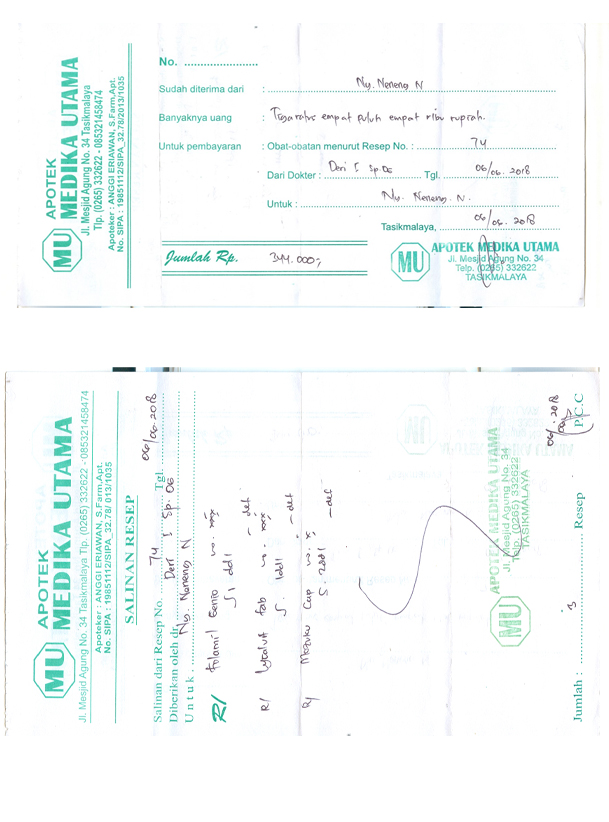 MU
APOTEK
MEDIKA UTAMA
Jl. Mesjid Agung No. 34 Tasikmalaya
Tlp. (0265) 332622 - 085321458474
Apoteker : ANGGI ERIAWAN, S.Farm,Apt.
No. SIPA : 19851112/SIPA_32.78/2013/1035
No. ........................
Sudah diterima dari Ny. Neneng N
Banyaknya uang : empat puluh empat ribu rupiah.
Untuk pembayaran : Obat-obatan menurut Resep No. : 74
Dari Dokter : Deri Sp.OG Tgl. 06/06. 2018
Untuk : Ny. Neneng. N.
Tasikmalaya, 06/06. 2018
Jumlah Rp. 344.000,-
MU
APOTEK MEDIKA UTAMA
Jl. Mesjid Agung No. 34
Telp. (0265) 332622
TASIKMALAYA
MU
APOTEK
MEDIKA UTAMA
Jl. Mesjid Agung No. 34 Tasikmalaya Tlp. (0265) 332622 - 085321458474
Apoteker : ANGGI ERIAWAN, S.Farm,Apt.
No. SIPA : 19851112/SIPA_32.78/ 013/1035
SALINAN RESEP
Salinan dari Resep No. 74 Tgl. 06/06 2018
Diberikan oleh dr. Deri Sp.OG
Untuk : Ny. Neneng N
R/ Folamil Genio no. xxx
S 1 dd 1 - det
R/ tab no. xxx
S. 1dd1 - det
R/ Cap no. x
S. 2dd1 - det
06/06 2018
P.C.C
MU
APOTEK MEDIKA UTAMA
Jl. Mesjid Agung No. 34
Telp. (0265) 332622
TASIKMALAYA
Jumlah : 3 Resep